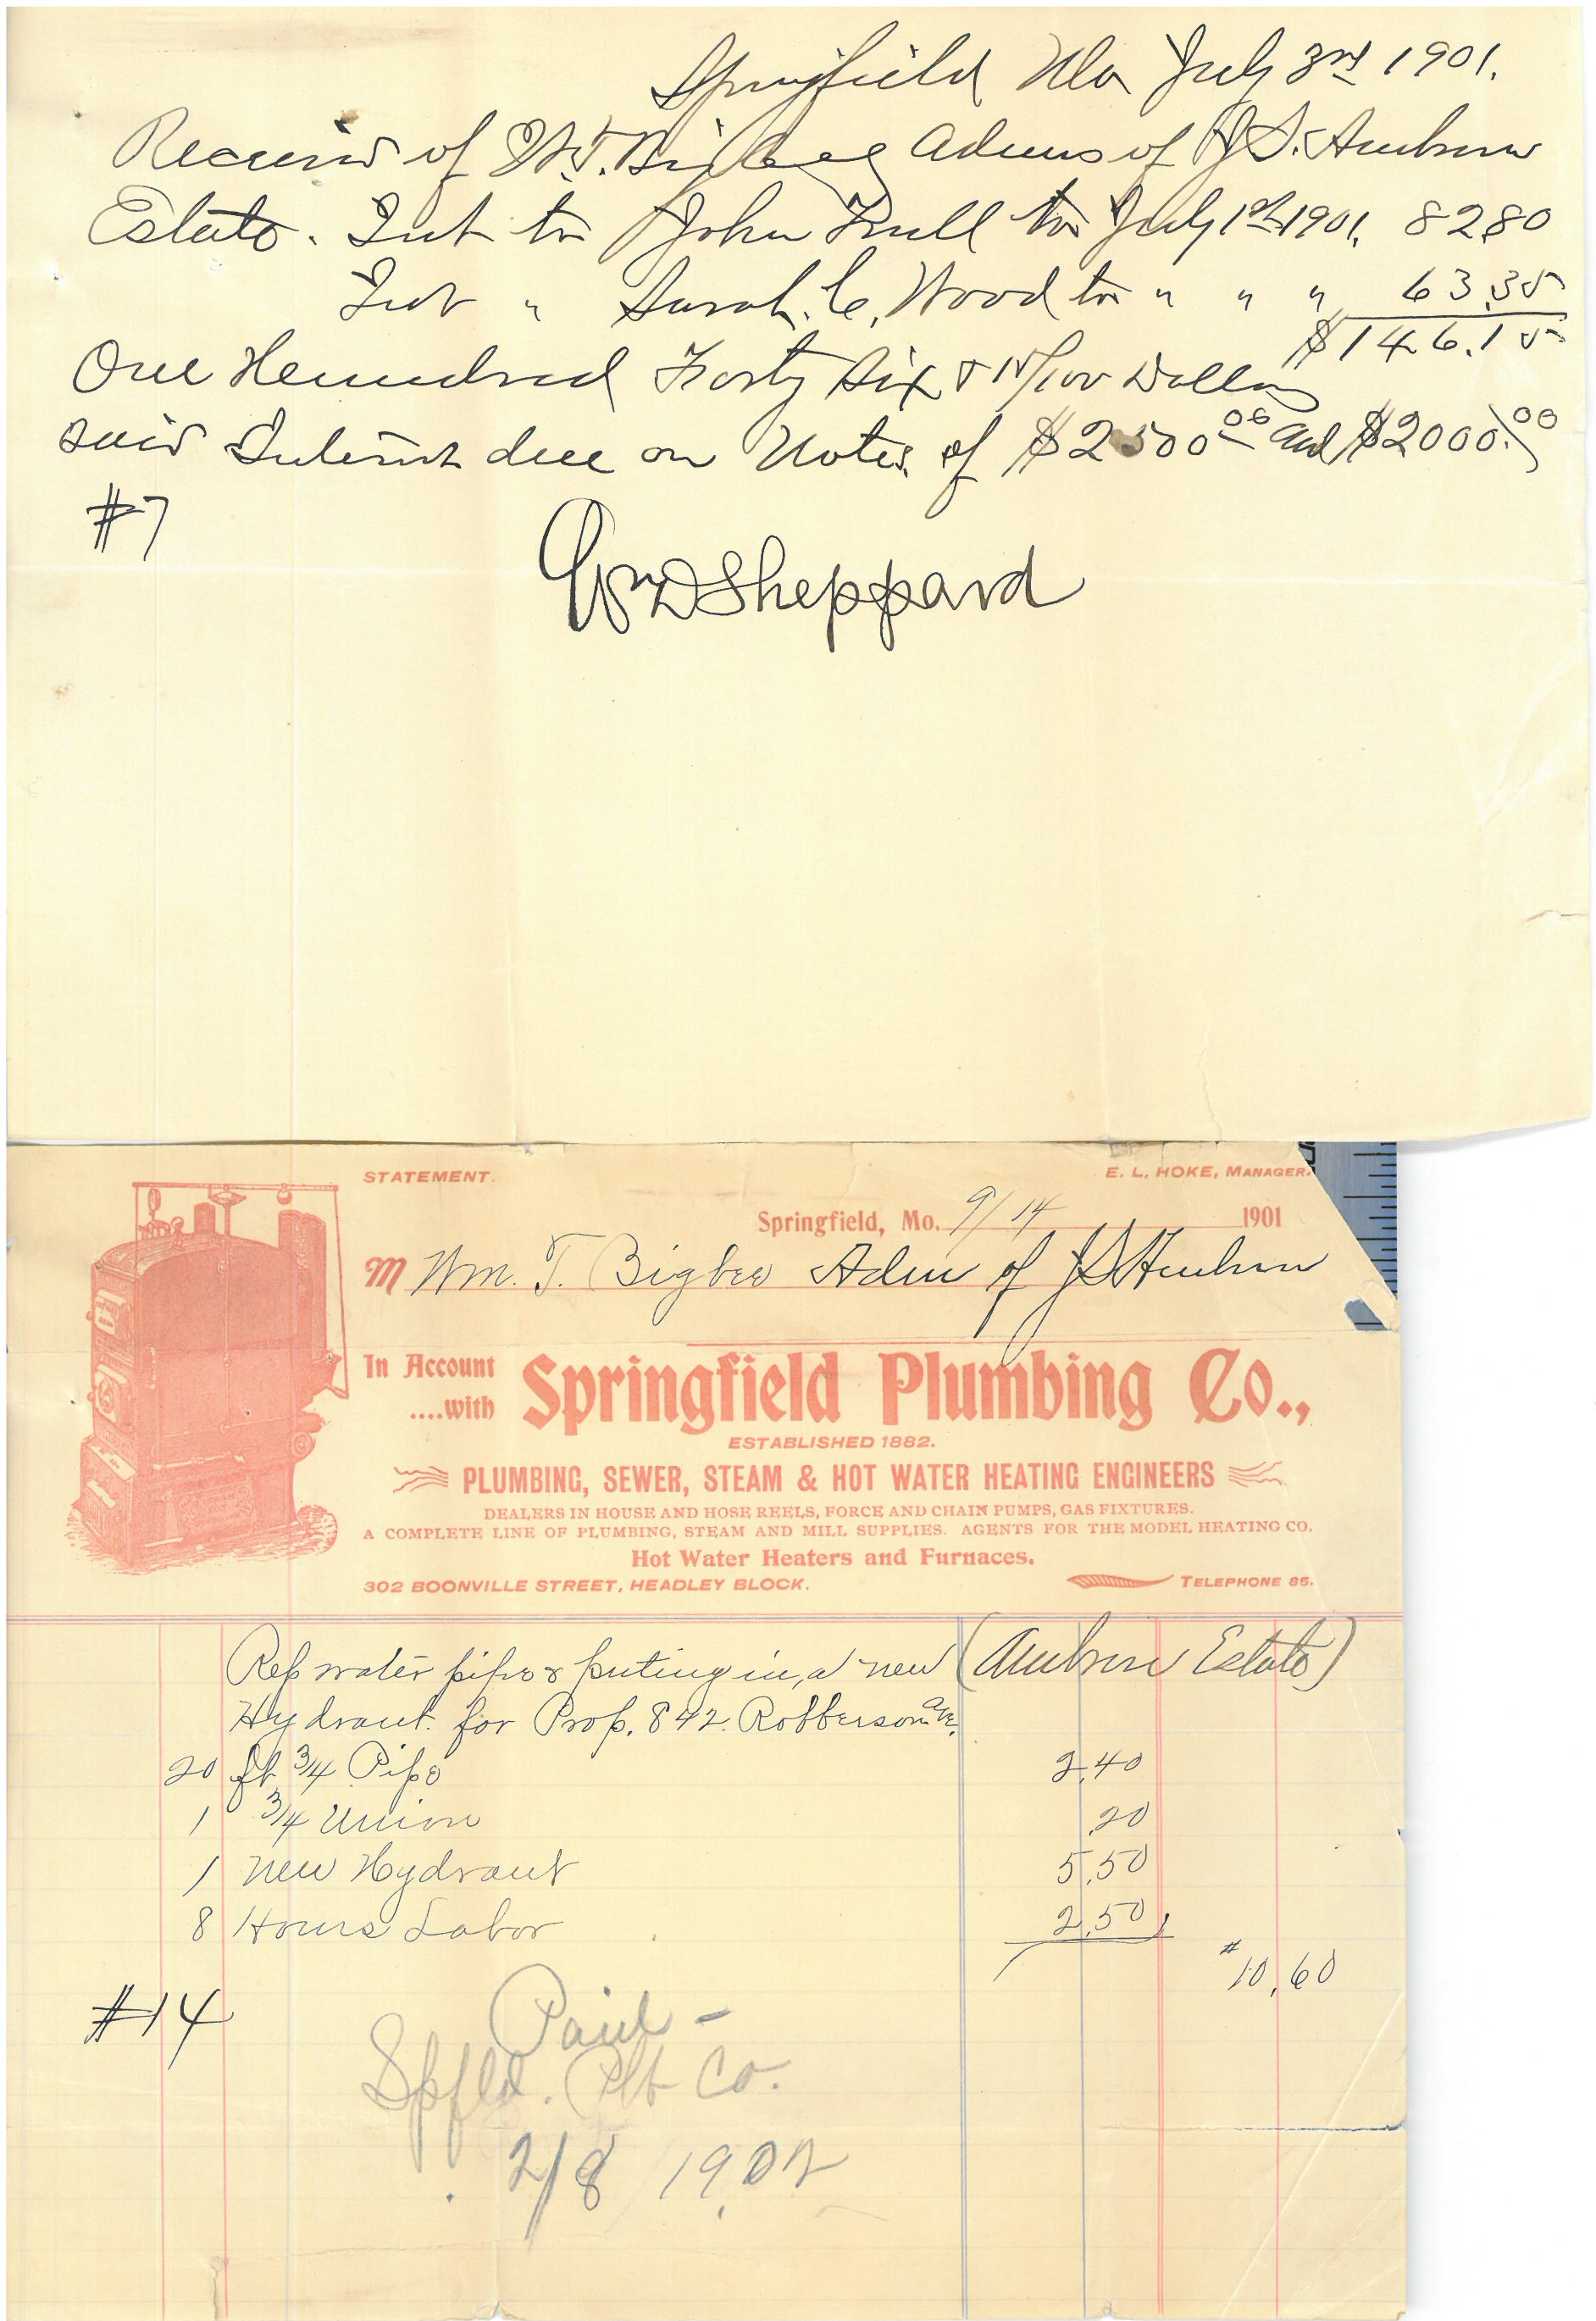 Springfield Mo July 3rd 1901.
Received of W.T. Bigbee Adms of J.S. Ambrose
Estate. Int to John Trull to July 1st 1901. 82 80
Int " Sarah. C. Wood to " " " 63.35
$146.15
One Hemudred Forty Six & 15/100 Dollars
said Interest due on Notes of $2500.00 and $2000.00
#7
Wm D Sheppard
STATEMENT.
E. L. HOKE, MANAGER.
Springfield, Mo. 9/14 1901
M Wm. T. Bigbee Adm of J S Ambrose
In Account
....with
Springfield Plumbing Co.,
ESTABLISHED 1882.
PLUMBING, SEWER, STEAM & HOT WATER HEATING ENGINEERS
DEALERS IN HOUSE AND HOSE REELS, FORCE AND CHAIN PUMPS, GAS FIXTURES.
A COMPLETE LINE OF PLUMBING, STEAM AND MILL SUPPLIES. AGENTS FOR THE MODEL HEATING CO.
Hot Water Heaters and Furnaces.
302 BOONVILLE STREET, HEADLEY BLOCK. TELEPHONE 85.
Rep water pipe & puting in, a new (Ambrose Estate)
Hydrant. for Prop. 842. Robberson Ave.
20 ft 3/4 Pipe 2.40
1 3/4 Union .20
1 New Hydrant 5.50
8 Hours Labor 2.50
# 10.60
#14
Paid -
Spfld. Plb Co.
2/8 1902